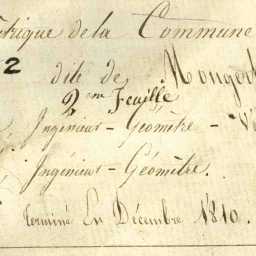 trique de la Commune
2
dite de Mongert
2me Feuille
Ingénieur - Géomètre - Vé
Ingénieur - Géomètre.
Terminé En Décembre 1810.